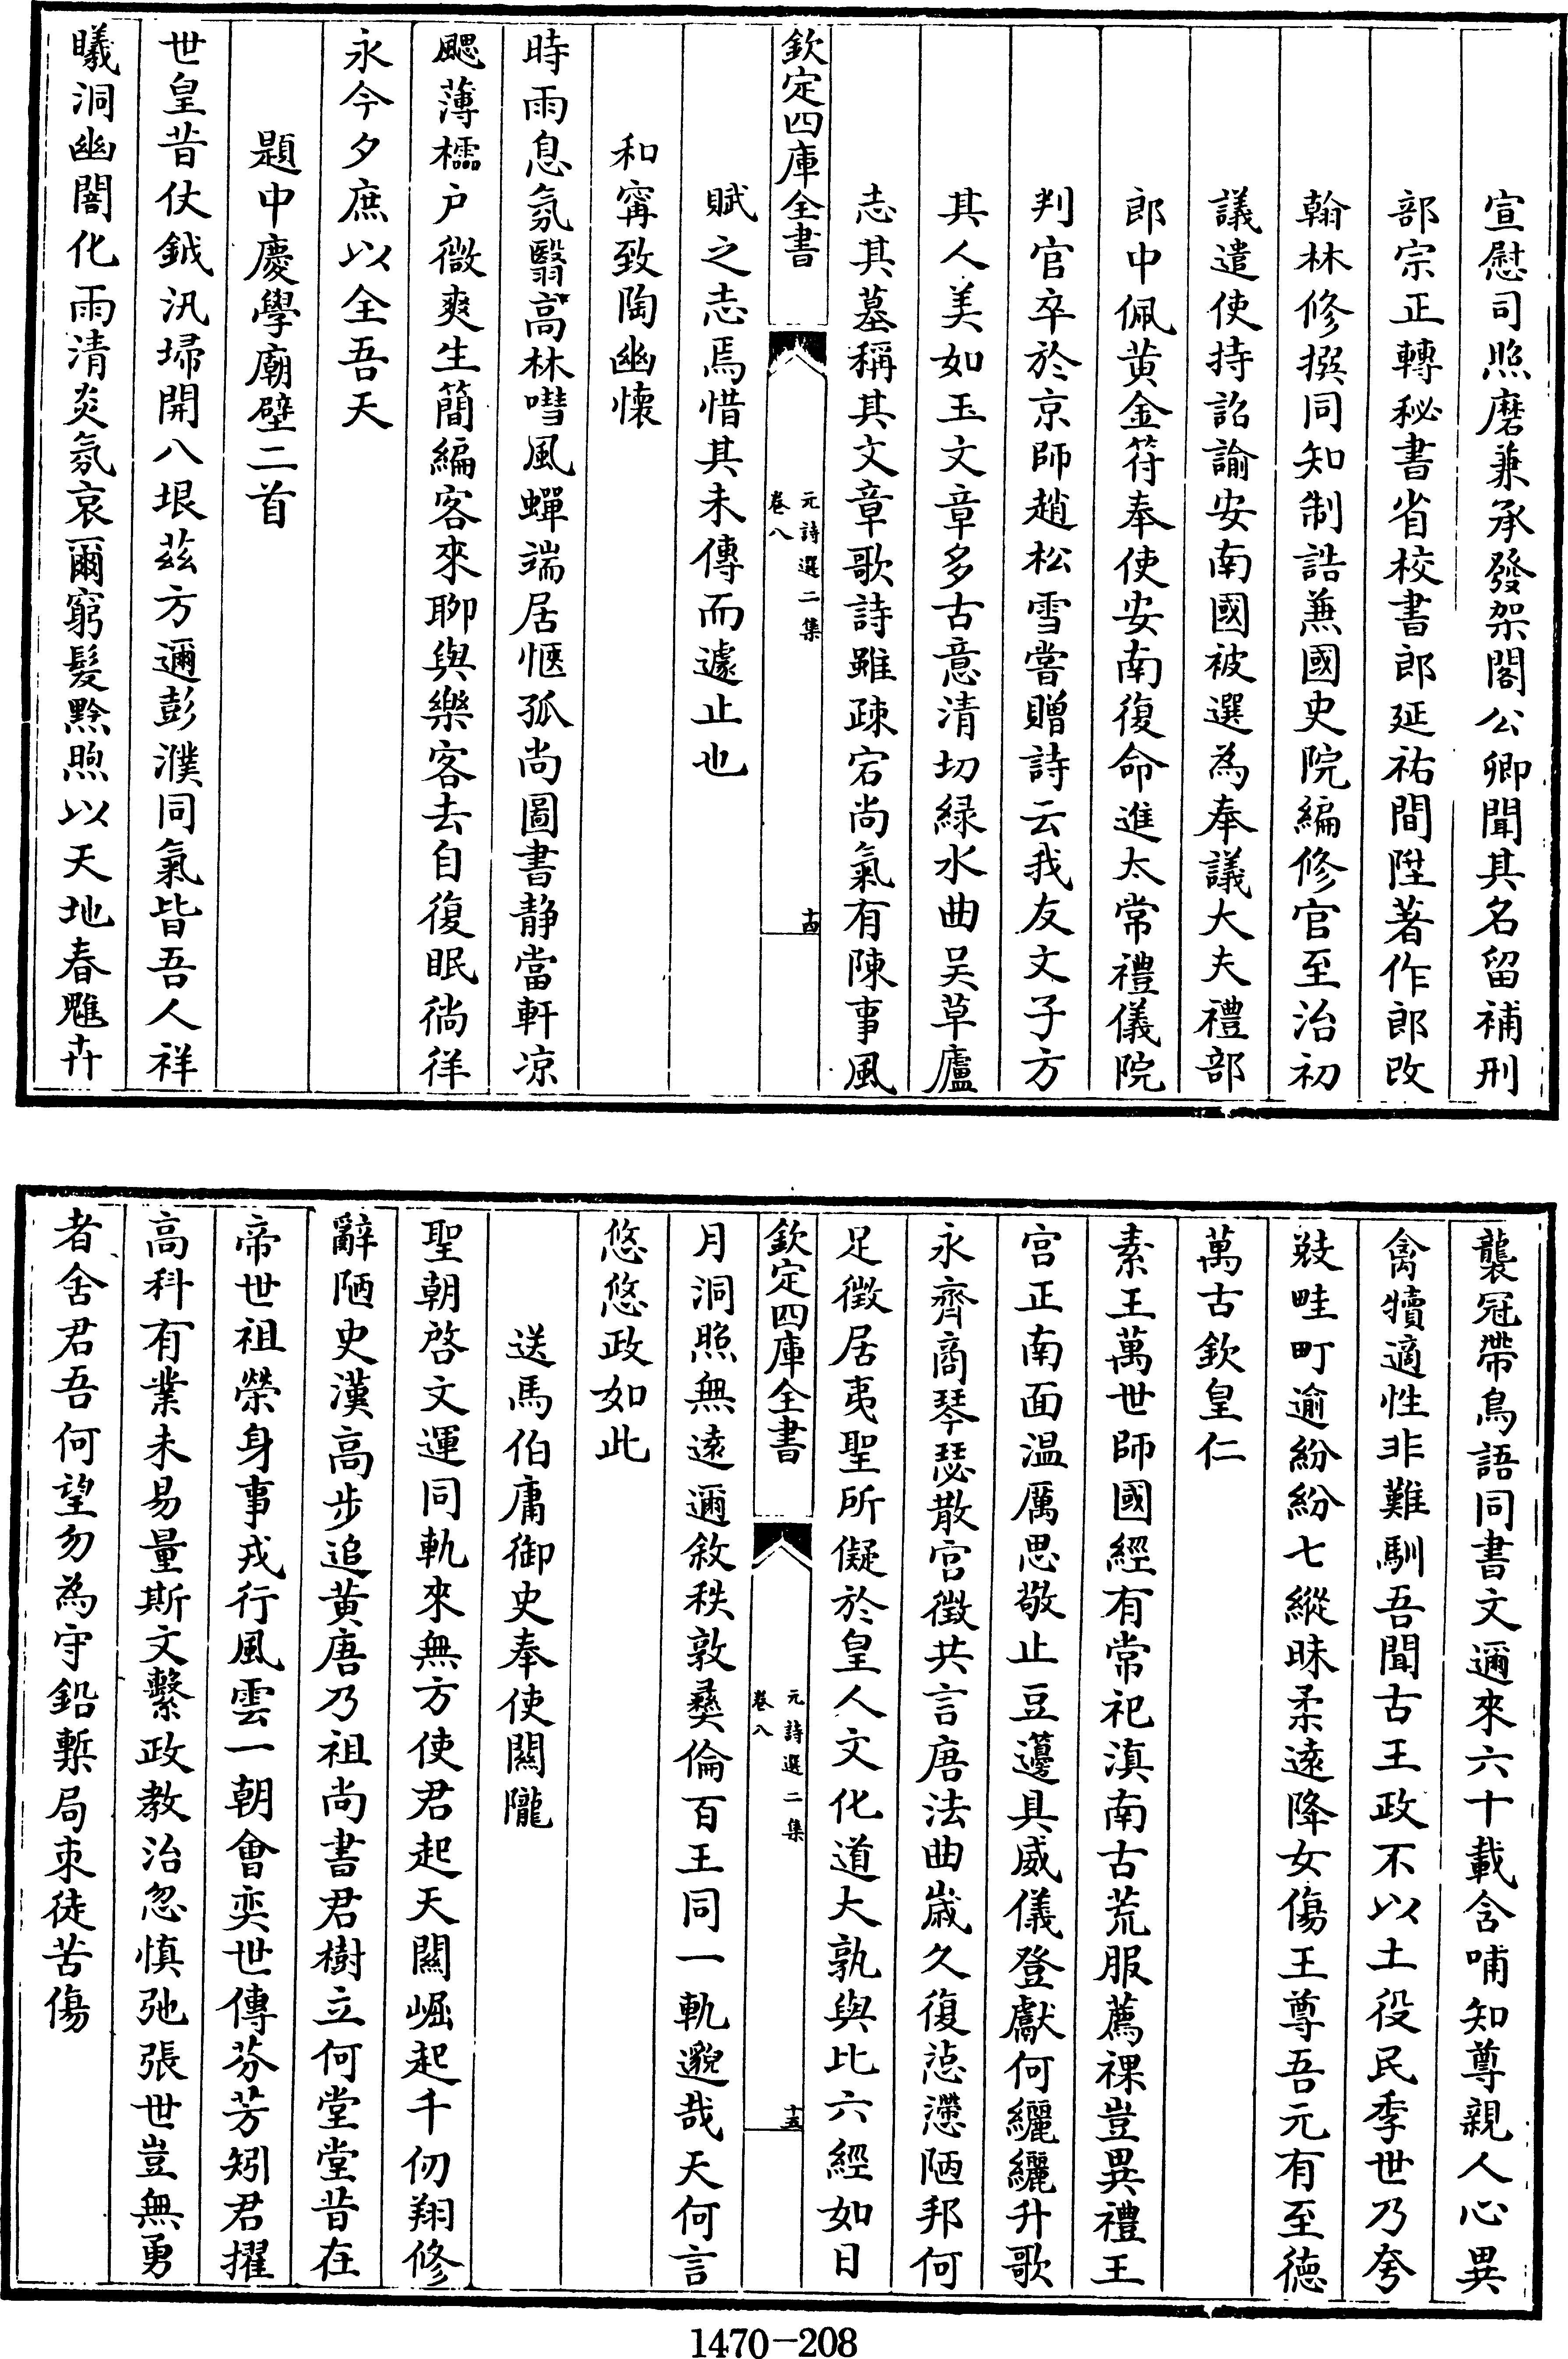 宣慰司照磨兼承發架閣公卿聞其名留補刑
部宗正轉秘書省校書郎延祐間陞著作郎改
翰林修撰同知制誥兼國史院編修官至治初
議遣使持詔諭安南國被選為奉議大夫禮部
郎中佩黄金符奉使安南復命進太常禮儀院
判官卒於京師趙松雪嘗贈詩云我友文子方
其人美如玉文章多古意清切緑水曲吴草廬
志其墓稱其文章歌詩雖疎宕尚氣有陳事風
欽定四庫全書
元詩選二集
卷八
十四
賦之志焉惜其未傳而遽止也
和甯致陶幽懷
時雨息氛翳高林嘒風蟬端居愜孤尚圖書静當軒凉
颸薄櫺户微爽生簡編客來聊與樂客去自復眠徜徉
永今夕庶以全吾天
題中慶學廟壁二首
世皇昔仗鉞汛埽開八垠茲方邇彭濮同氣皆吾人祥
曦洞幽闇化雨清炎氛哀爾窮髮黔煦以天地春魋卉
襲冠帶鳥語同書文邇來六十載含哺知尊親人心異
禽犢適性非難馴吾聞古王政不以土役民季世乃夸
敠畦町逾紛紛七縱昧柔遠降女傷王尊吾元有至徳
萬古欽皇仁
素王萬世師國經有常祀滇南古荒服薦祼豈異禮王
宫正南面温厲思敬止豆籩具威儀登獻何纚纚升歌
永齊商琴瑟散宫徵共言唐法曲歲久復惉懘陋邦何
足徴居夷聖所儗於皇人文化道大孰與比六經如日
欽定四庫全書
元詩選二集
卷八
十五
月洞照無遠邇敘秩敦彜倫百王同一軌邈哉天何言
悠悠政如此
送馬伯庸御史奉使關隴
聖朝啓文運同軌來無方使君起天關崛起千仞翔修
辭陋史漢高步追黄唐乃祖尚書君樹立何堂堂昔在
帝世祖榮身事戎行風雲一朝會奕世傳芬芳矧君擢
高科有業未易量斯文繫政教治忽慎弛張世豈無勇
者舍君吾何望勿為守鉛槧局束徒苦傷
1470-208